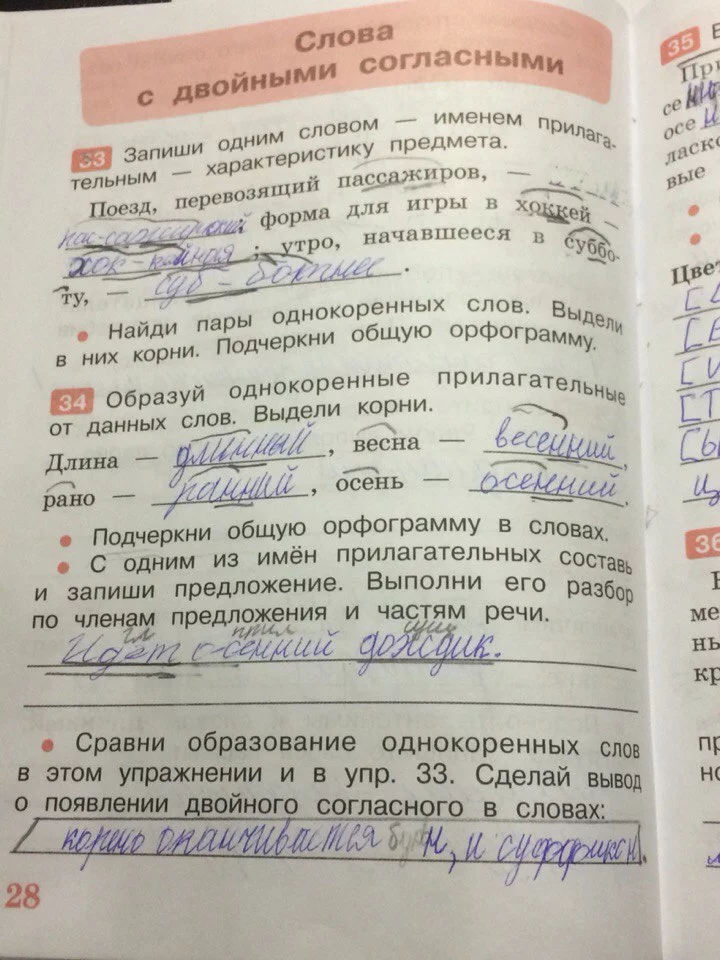 Слова
с двойными согласными
33 Запиши одним словом — именем прилага-
тельным — характеристику предмета.
Поезд, перевозящий пассажиров, —
пас-сажирский форма для игры в хоккей —
хок-кейная ; утро, начавшееся в суббо-
ту, — суб-ботнее .
• Найди пары однокоренных слов. Выдели
в них корни. Подчеркни общую орфограмму.
34 Образуй однокоренные прилагательные
от данных слов. Выдели корни.
Длина — длинный , весна — весенний ,
рано — ранний , осень — осенний .
• Подчеркни общую орфограмму в словах.
• С одним из имён прилагательных составь
и запиши предложение. Выполни его разбор
по членам предложения и частям речи.
гл прил сущ
Идёт осенний дождик.
• Сравни образование однокоренных слов
в этом упражнении и в упр. 33. Сделай вывод
о появлении двойного согласного в словах:
корень оканчивается н, и суффикс н.
28
35
При
се нн
осе н
ласко
вые
•
•
Цвет
36
ме
ны
кр
пр
но